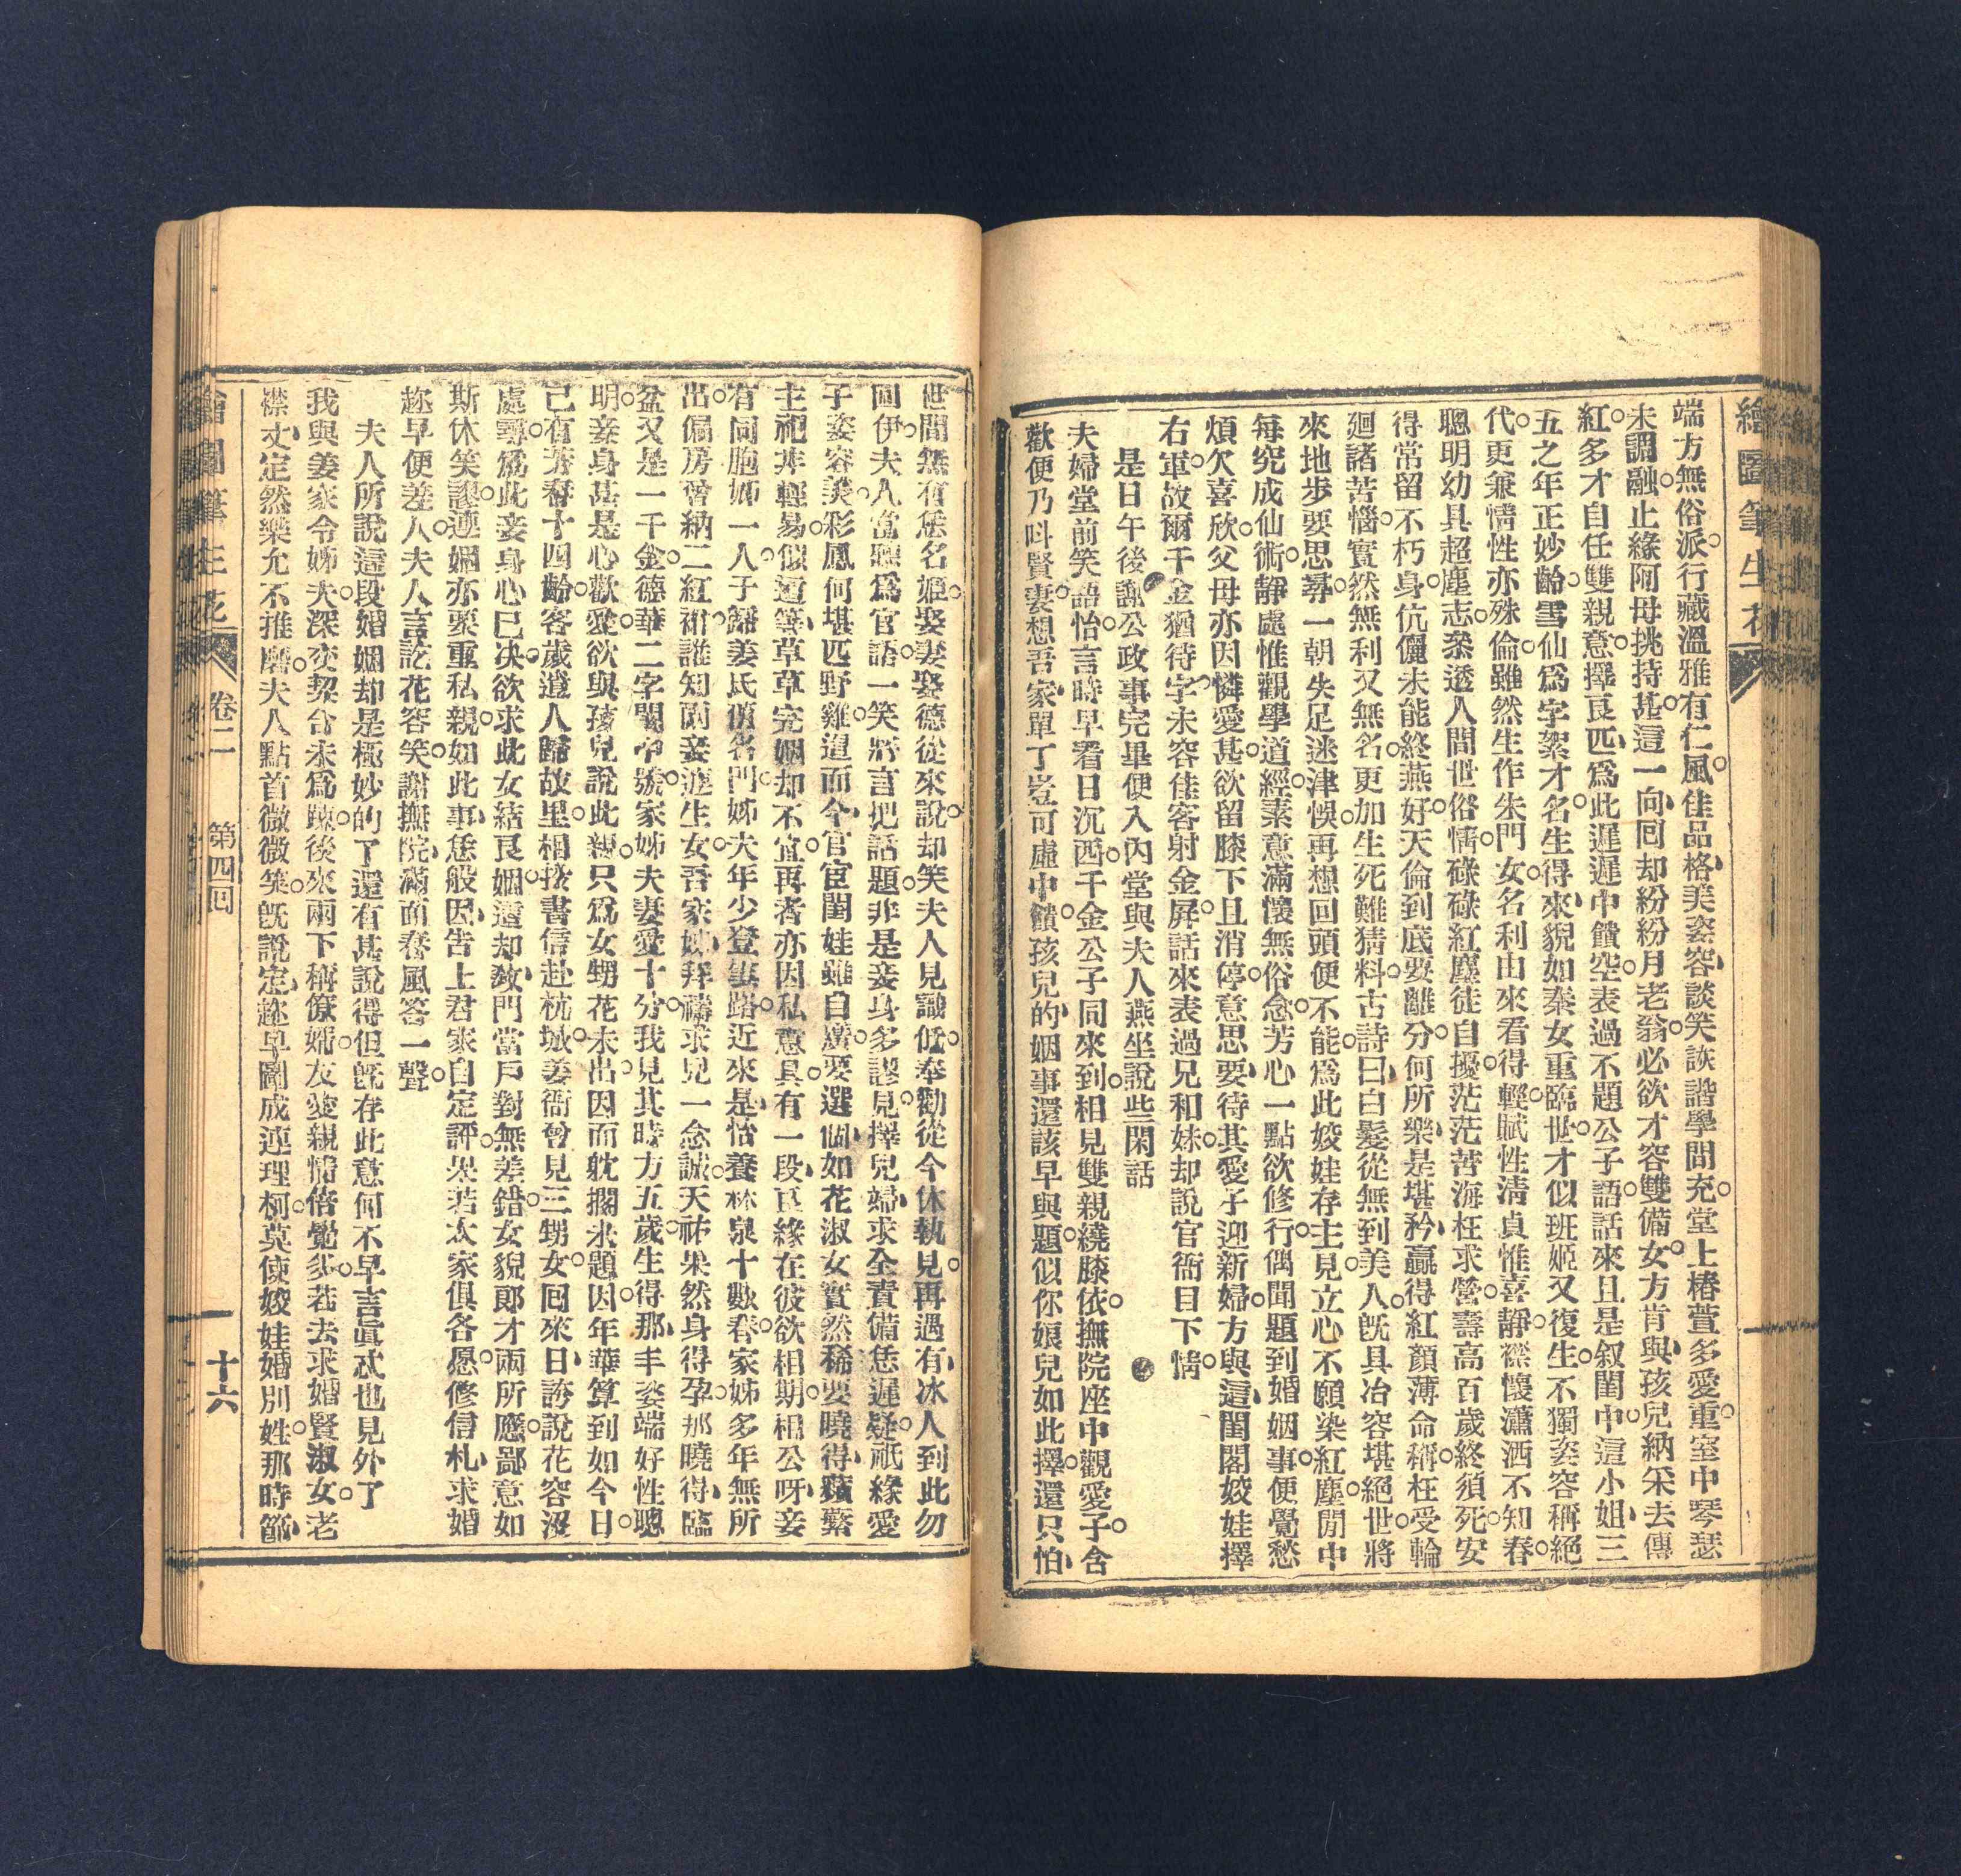 繪圖筆生花
端方無俗派行藏溫雅有仁風佳品格美姿容談笑詼諧學問充堂上椿萱多愛重室中琴瑟
未調融止緣阿母挑持甚這一向回却紛紛月老翁必欲才容雙備女方肯與孩兒納采去傳
紅多才自任雙親意擇良匹爲此遲遲中饋空表過不題公子語話來且是叙閨中這小姐三
五之年正妙齡雪仙爲字絮才名生得來貌如秦女重臨世才似班姬又復生不獨姿容稱絕
代更兼情性亦殊倫雖然生作朱門女名利由來看得輕賦性清貞惟喜靜襟懷瀟洒不知春
聰明幼具超塵志叅透人間世俗情碌碌紅塵徒自擾茫茫苦海枉求營壽高百歲終須死安
得常留不朽身伉儷未能終燕好天倫到底要離分何所樂是堪矜贏得紅顏薄命稱枉受輪
廻諸苦惱實然無利又無名更加生死難猜料古詩曰白髮從無到美人旣具冶容堪絕世將
來地步要思尋一朝失足迷津悞再想回頭便不能爲此姣娃存主見立心不願染紅塵閒中
每究成仙術靜處惟觀學道經素意滿懷無俗念芳心一點欲修行偶聞題到婚姻事便覺愁
煩欠喜欣父母亦因憐愛甚欲留膝下且消停意思要待其愛子迎新婦方與這閨閣姣娃擇
右軍故爾千金猶待字未容佳客射金屏話來表過兄和妹却説官衙目下情
是日午後謝公政事完畢便入內堂與夫人燕坐說些閑話
夫婦堂前笑語怡言時早看日沉西千金公子同來到相見雙親繞膝依撫院座中觀愛子含
歡便乃呌賢妻想吾家單丁豈可虛中饋孩兒的姻事還該早與題似你娘兒如此擇還只怕
世間無有恁名姬娶妻娶德從來說却笑夫人見識低奉勸從今休執見再遇有冰人到此勿
回伊夫人當聽爲官語一笑將言把話題非是妾身多謬見擇兒婦求全責備恁遲疑祇緣愛
子姿容美彩鳳何堪匹野雞這而今官宦閨娃雖自廣要選個如花淑女實然稀要曉得蘋蘩
主祀非輕易似這等草草完姻却不宜再者亦因私意具有一段良緣在彼欲相期相公呀妾
有同胞姊一人于歸姜氏値名門姊夫年少登雲路近來是怡養林泉十數春家姊多年無所
出偏房曾納二紅裙誰知兩妾連生女吾家姊拜禱求兒一念誠天祐果然身得孕那曉得臨
盆又是一千金德華二字閨中號家姊夫妻愛十分我見其時方五歲生得那丰姿端好性聰
明妾身甚是心歡愛欲與孩兒說此親只爲女甥花未出因而躭擱未題因年華算到如今日
已有芳春十四齡客歲遣人歸故里相投書信赴杭城姜衙曾見三甥女回來日誇說花容沒
處尋爲此妾身心已决欲求此女結良姻這却敎門當戶對無差錯女貌郞才兩所應鄙意如
斯休笑謬連姻亦要重私親如此事恁般因告上君家自定評果若大家俱各愿修信札求婚
趂早便差人夫人言訖花容笑謝撫院滿面春風答一聲
夫人所說這段婚姻却是極妙的了還有甚說得但旣存此意何不早言眞忒也見外了
我與姜家令姊夫深交契合未爲踈後來兩下稱僚壻友愛親情倍覺多若去求婚賢淑女老
襟丈定然樂允不推磨夫人點首微微笑旣說定趂早圖成連理柯莫使姣娃婚別姓那時節
繪圖筆生花
卷二
第四回
十六